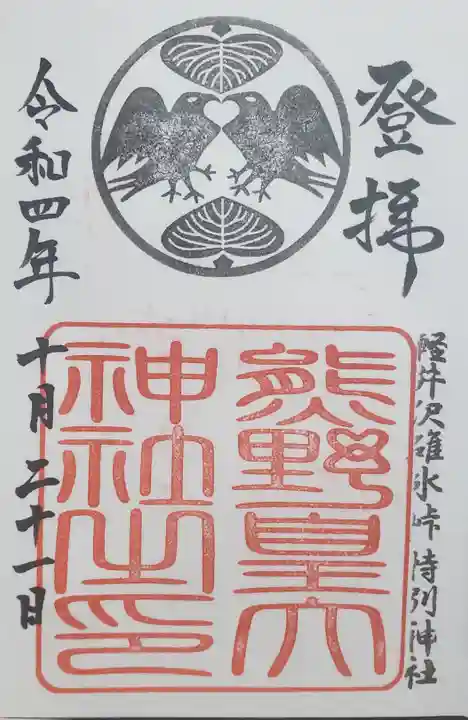 登拝
軽井沢碓氷峠 特別神社
熊野皇大
神社之印
令和四年
十月二十一日